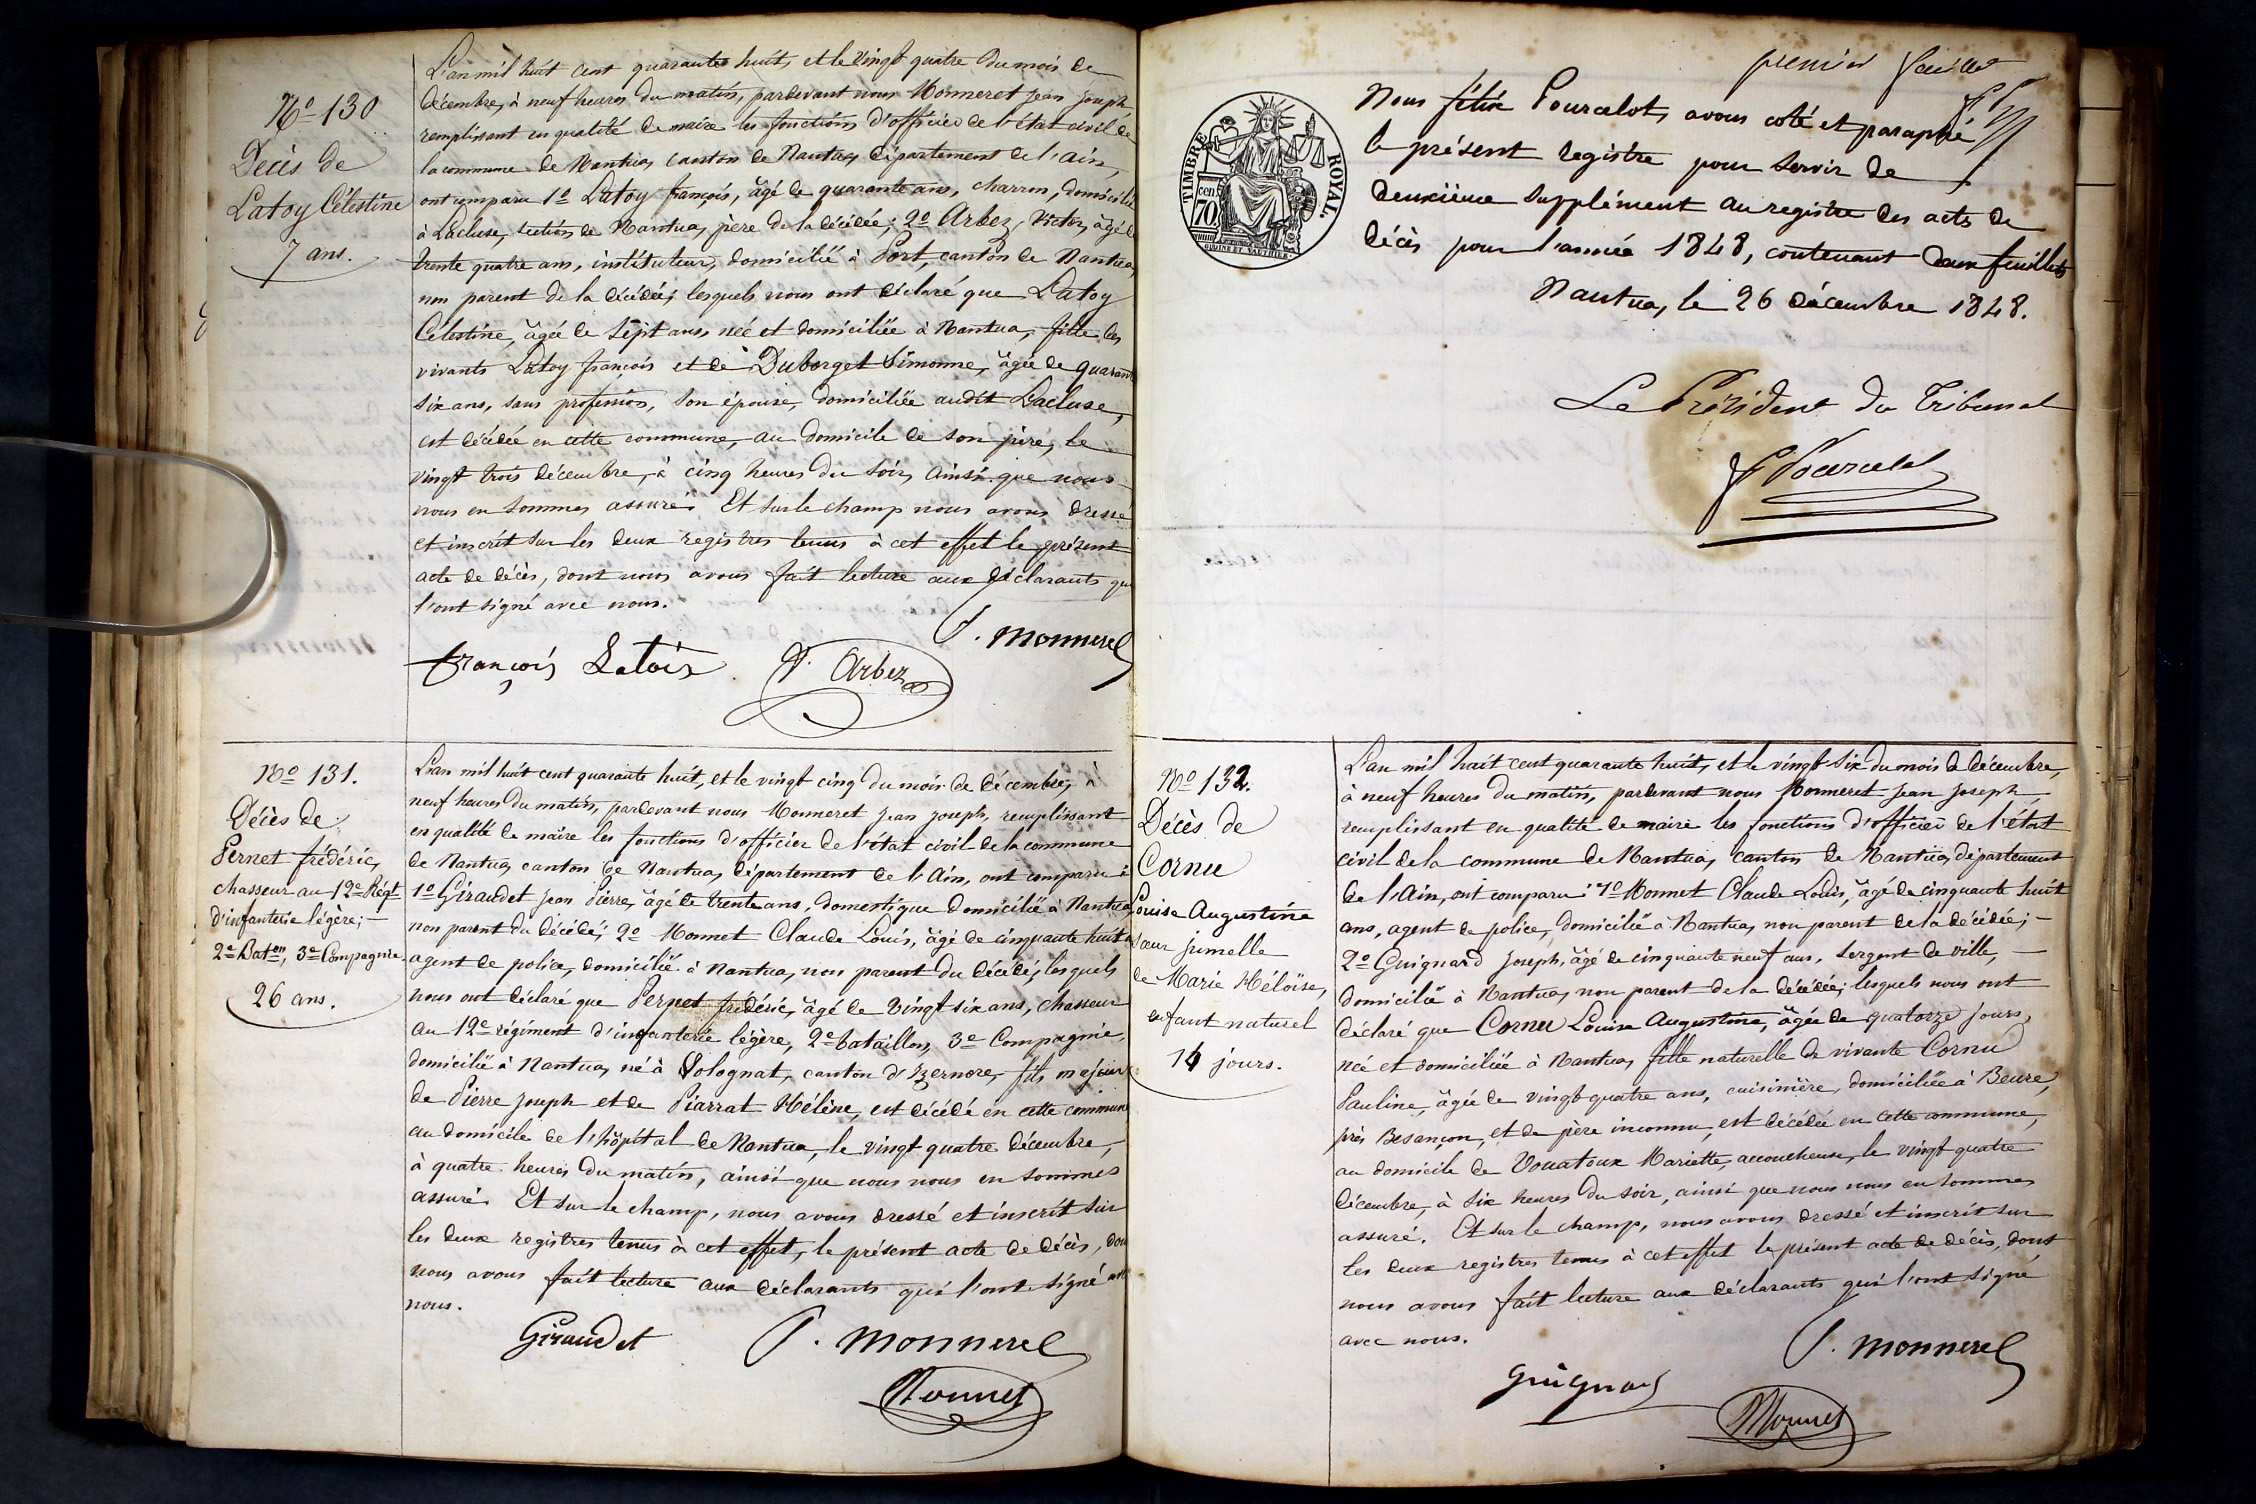 Nº 130
Décès de
Latoy Célestine
7 ans.
L'an mil huit cent quarante huit, et le vingt quatre du mois de
décembre, à neuf heures du matin, pardevant nous Monneret jean joseph
remplissant en qualité de maire les fonctions d'officier de l'état civil de
la commune de Nantua, canton de Nantua, département de l'ain,
ont comparu 1º Latoy françois, âgé de quarante ans, charron, domicilié
à Lacluse, section de Nantua, père de la décédée; 2º Arbez, Victor, âgé de
trente quatre ans, instituteur, domicilié à Port, canton de Nantua,
non parent de la décédée; lesquels nous ont déclaré que Latoy
Célestine, âgée de sept ans, née et domiciliée à Nantua, fille des
vivants Latoy françois et de Duborget Simonne, âgée de quarante
six ans, sans profession, son épouse, domiciliée audit Lacluse,
est décédée en cette commune, au domicile de son père, le
vingt trois décembre, à cinq heures du soir, ainsi que nous
nous en sommes assuré. Et sur le champ nous avons dressé
et inscrit sur les deux registres tenus à cet effet le présent
acte de décès, dont nous avons fait lecture aux déclarants qui
l'ont signé avec nous.
J. Monneret
françois Latoix V. Arbez
Nº 131.
Décès de
Pernet frédéric,
chasseur au 12e Régt
d'infanterie légère;
2e Baton, 3e Compagnie.
26 ans.
L'an mil huit cent quarante huit, et le vingt cinq du mois de décembre, à
neuf heures du matin, pardevant nous Monneret jean joseph, remplissant
en qualité de maire les fonctions d'officier de l'état civil de la commune
de Nantua, canton de Nantua, département de l'Ain, ont comparu :
1º Giraudet jean Pierre, âgé de trente ans, domestique domicilié à Nantua,
non parent du décédé; 2º Monnet Claude Louis, âgé de cinquante huit
agent de police, domicilié à Nantua, non parent du décédé; lesquels
nous ont déclaré que Pernet frédéric, âgé de vingt six ans, chasseur
au 12e régiment d'infanterie légère, 2e bataillon, 3e Compagnie,
domicilié à Nantua, né à Solognat, canton d'Izernore, fils majeur
de Pierre joseph et de Piarrat Hélène, est décédé en cette commune
au domicile de l'hôpital de Nantua, le vingt quatre décembre,
à quatre heures du matin, ainsi que nous nous en sommes
assuré. Et sur le champ, nous avons dressé et inscrit sur
les deux registres tenus à cet effet, le présent acte de décès, dont
nous avons fait lecture aux déclarants qui l'ont signé avec
nous.
Giraudet J. Monneret
Monnet
premier feuillet
TIMBRE ROYAL
cen. 70
Nous félix Pourcelot, avons coté et paraphé
le présent registre pour servir de
deuxième supplément au registre des actes de
décès pour l'année 1848, contenant deux feuillets
Nantua, le 26 décembre 1848.
Le Président du Tribunal
f Pourcelot
Nº 132.
Décès de
Cornu
Louise Augustine
sœur jumelle
de Marie Héloïse,
enfant naturel
14 jours.
L'an mil huit cent quarante huit, et le vingt six du mois de décembre,
à neuf heures du matin, pardevant nous Monneret jean joseph
remplissant en qualité de maire les fonctions d'officier de l'état
civil de la commune de Nantua, canton de Nantua, département
de l'Ain, ont comparu : 1º Monnet Claude Louis, âgé de cinquante huit
ans, agent de police, domicilié à Nantua, non parent de la décédée;
2º Guignard joseph, âgé de cinquante neuf ans, sergent de ville,
domicilié à Nantua, non parent de la décédée; lesquels nous ont
déclaré que Cornu Louise Augustine, âgée de quatorze jours,
née et domiciliée à Nantua, fille naturelle de vivante Cornu
Pauline, âgée de vingt quatre ans, cuisinière, domiciliée à Beure,
près Besançon, et de père inconnu, est décédée en cette commune,
au domicile de Vouatoux Mariette, accoucheuse, le vingt quatre
décembre, à six heures du soir, ainsi que nous nous en sommes
assuré. Et sur le champ, nous avons dressé et inscrit sur
les deux registres tenus à cet effet le présent acte de décès, dont
nous avons fait lecture aux déclarants qui l'ont signé
avec nous.
J. Monneret
Guignard
Monnet